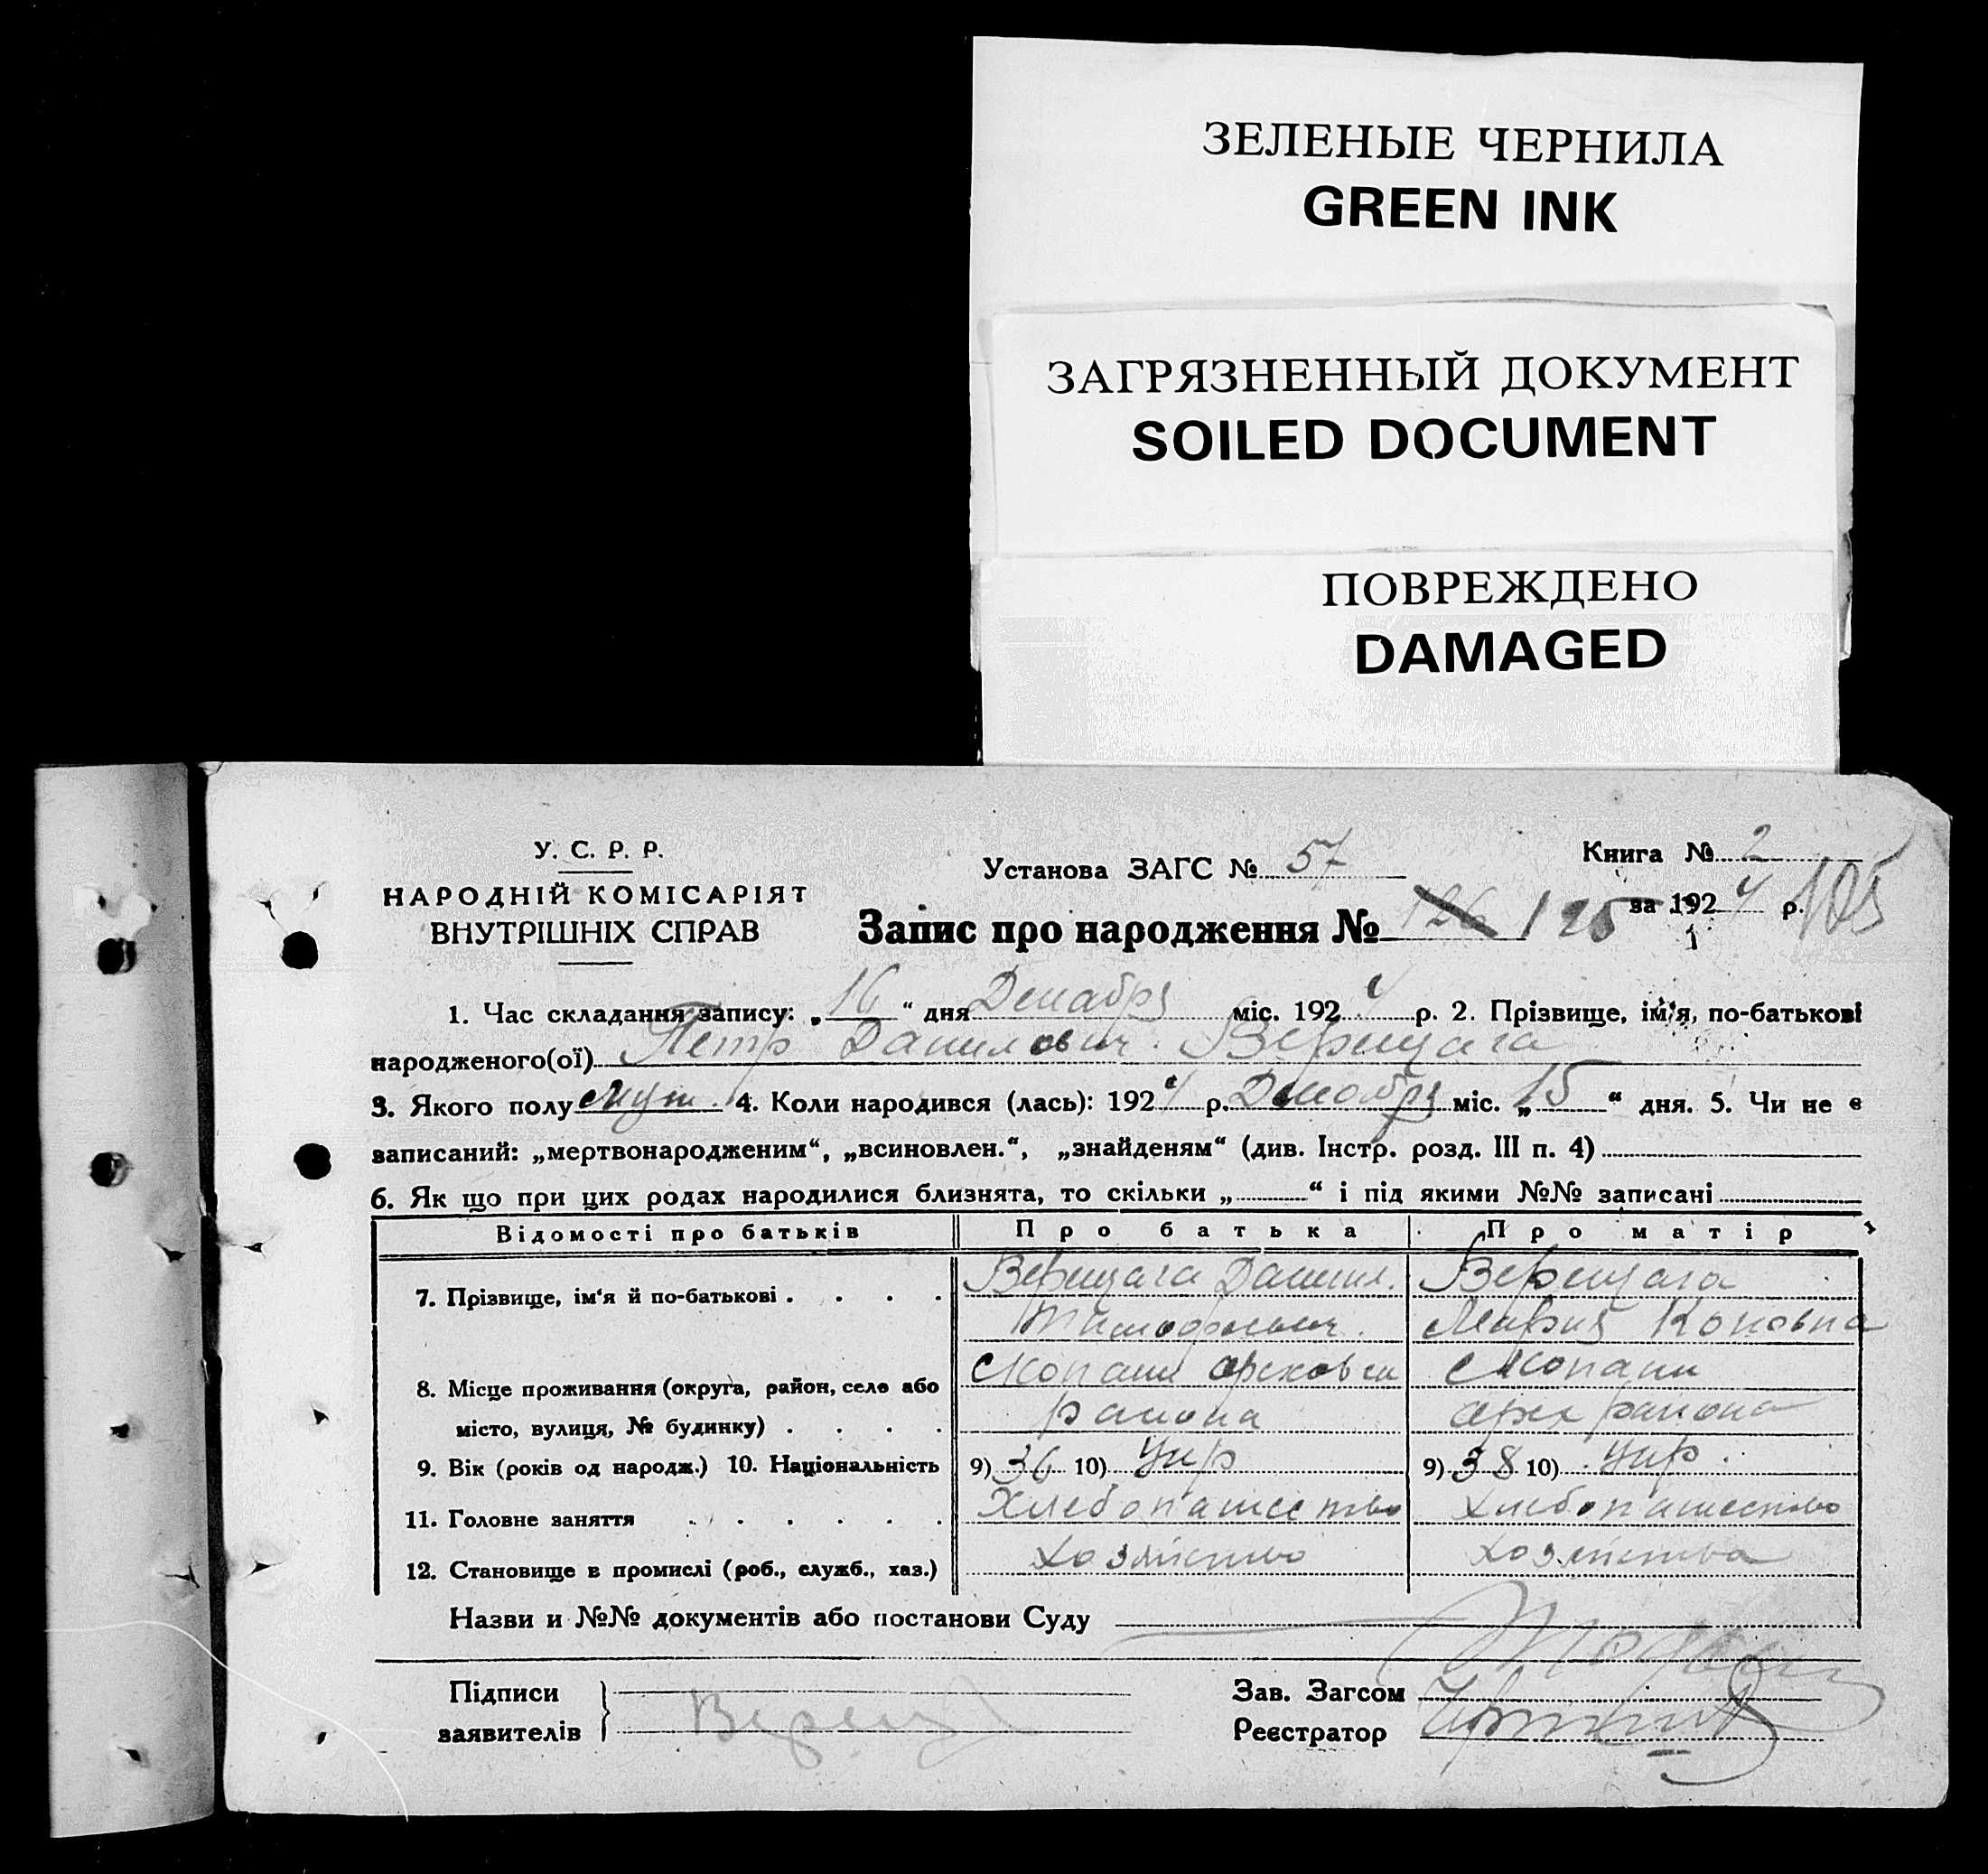 ЗЕЛЕНЫЕ ЧЕРНИЛА
GREEN INK
ЗАГРЯЗНЕННЫЙ ДОКУМЕНТ
SOILED DOCUMENT
ПОВРЕЖДЕНО
DAMAGED
У. С. Р. Р.
НАРОДНІЙ КОМІСАРІЯТ
ВНУТРІШНІХ СПРАВ
Установа ЗАГС № 57
Книга № 2
за 1924 р. 105
Запис про народження № 126 125
1. Час складання запису: „16“ дня Декабря міс. 1924 р. 2. Прізвище, ім'я, по-батькові
народженого(ої) Петр Данилович Верещага
3. Якого полу муж. 4. Коли народився (лась): 1924 р. Декабря міс. „15“ дня. 5. Чи не є
записаний: „мертвонародженим“, „всиновлен.“, „знайденям“ (див. Інстр. розд. III п. 4)
6. Як що при цих родах народилися близнята, то скільки „ “ і під якими №№ записані
Відомості про батьків Про батька Про матір
7. Прізвище, ім'я й по-батькові Верещага Данил. Верещага
Тимофеевич. Мария Коновна
8. Місце проживання (округа, район, село або Копани Орехов Копани
місто, вулиця, № будинку) района Орех района
9. Вік (років од народж.) 10. Національність 9) 36 10) Укр 9) 38 10) Укр.
11. Головне заняття Хлебопашество хлебопашество
12. Становище в промислі (роб., служб., хаз.) хозяйство хозяйства
Назви и №№ документів або постанови Суду
Підписи
заявителів
Верещ
Зав. Загсом
Реєстратор